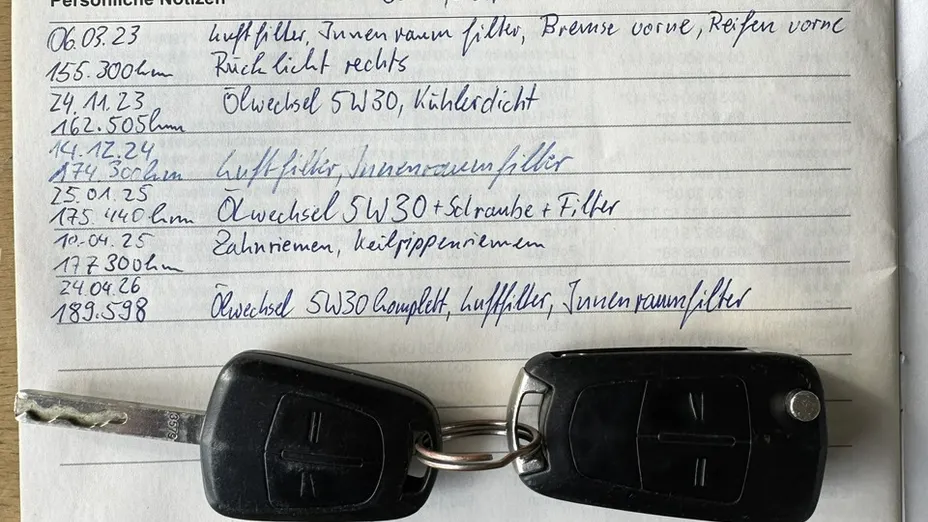 Persönliche Notizen
06.03.23 Luftfilter, Innenraumfilter, Bremse vorne, Reifen vorne
155.300km Rücklicht rechts
24.11.23 Ölwechsel 5W30, Kühlerdicht
162.505km
14.12.24
174.300km Luftfilter, Innenraumfilter
25.01.25
175.440km Ölwechsel 5W30+Schraube+Filter
10.04.25 Zahnriemen, Keilrippenriemen
177300km
24.04.26
189.598 Ölwechsel 5W30 komplett, Luftfilter, Innenraumfilter